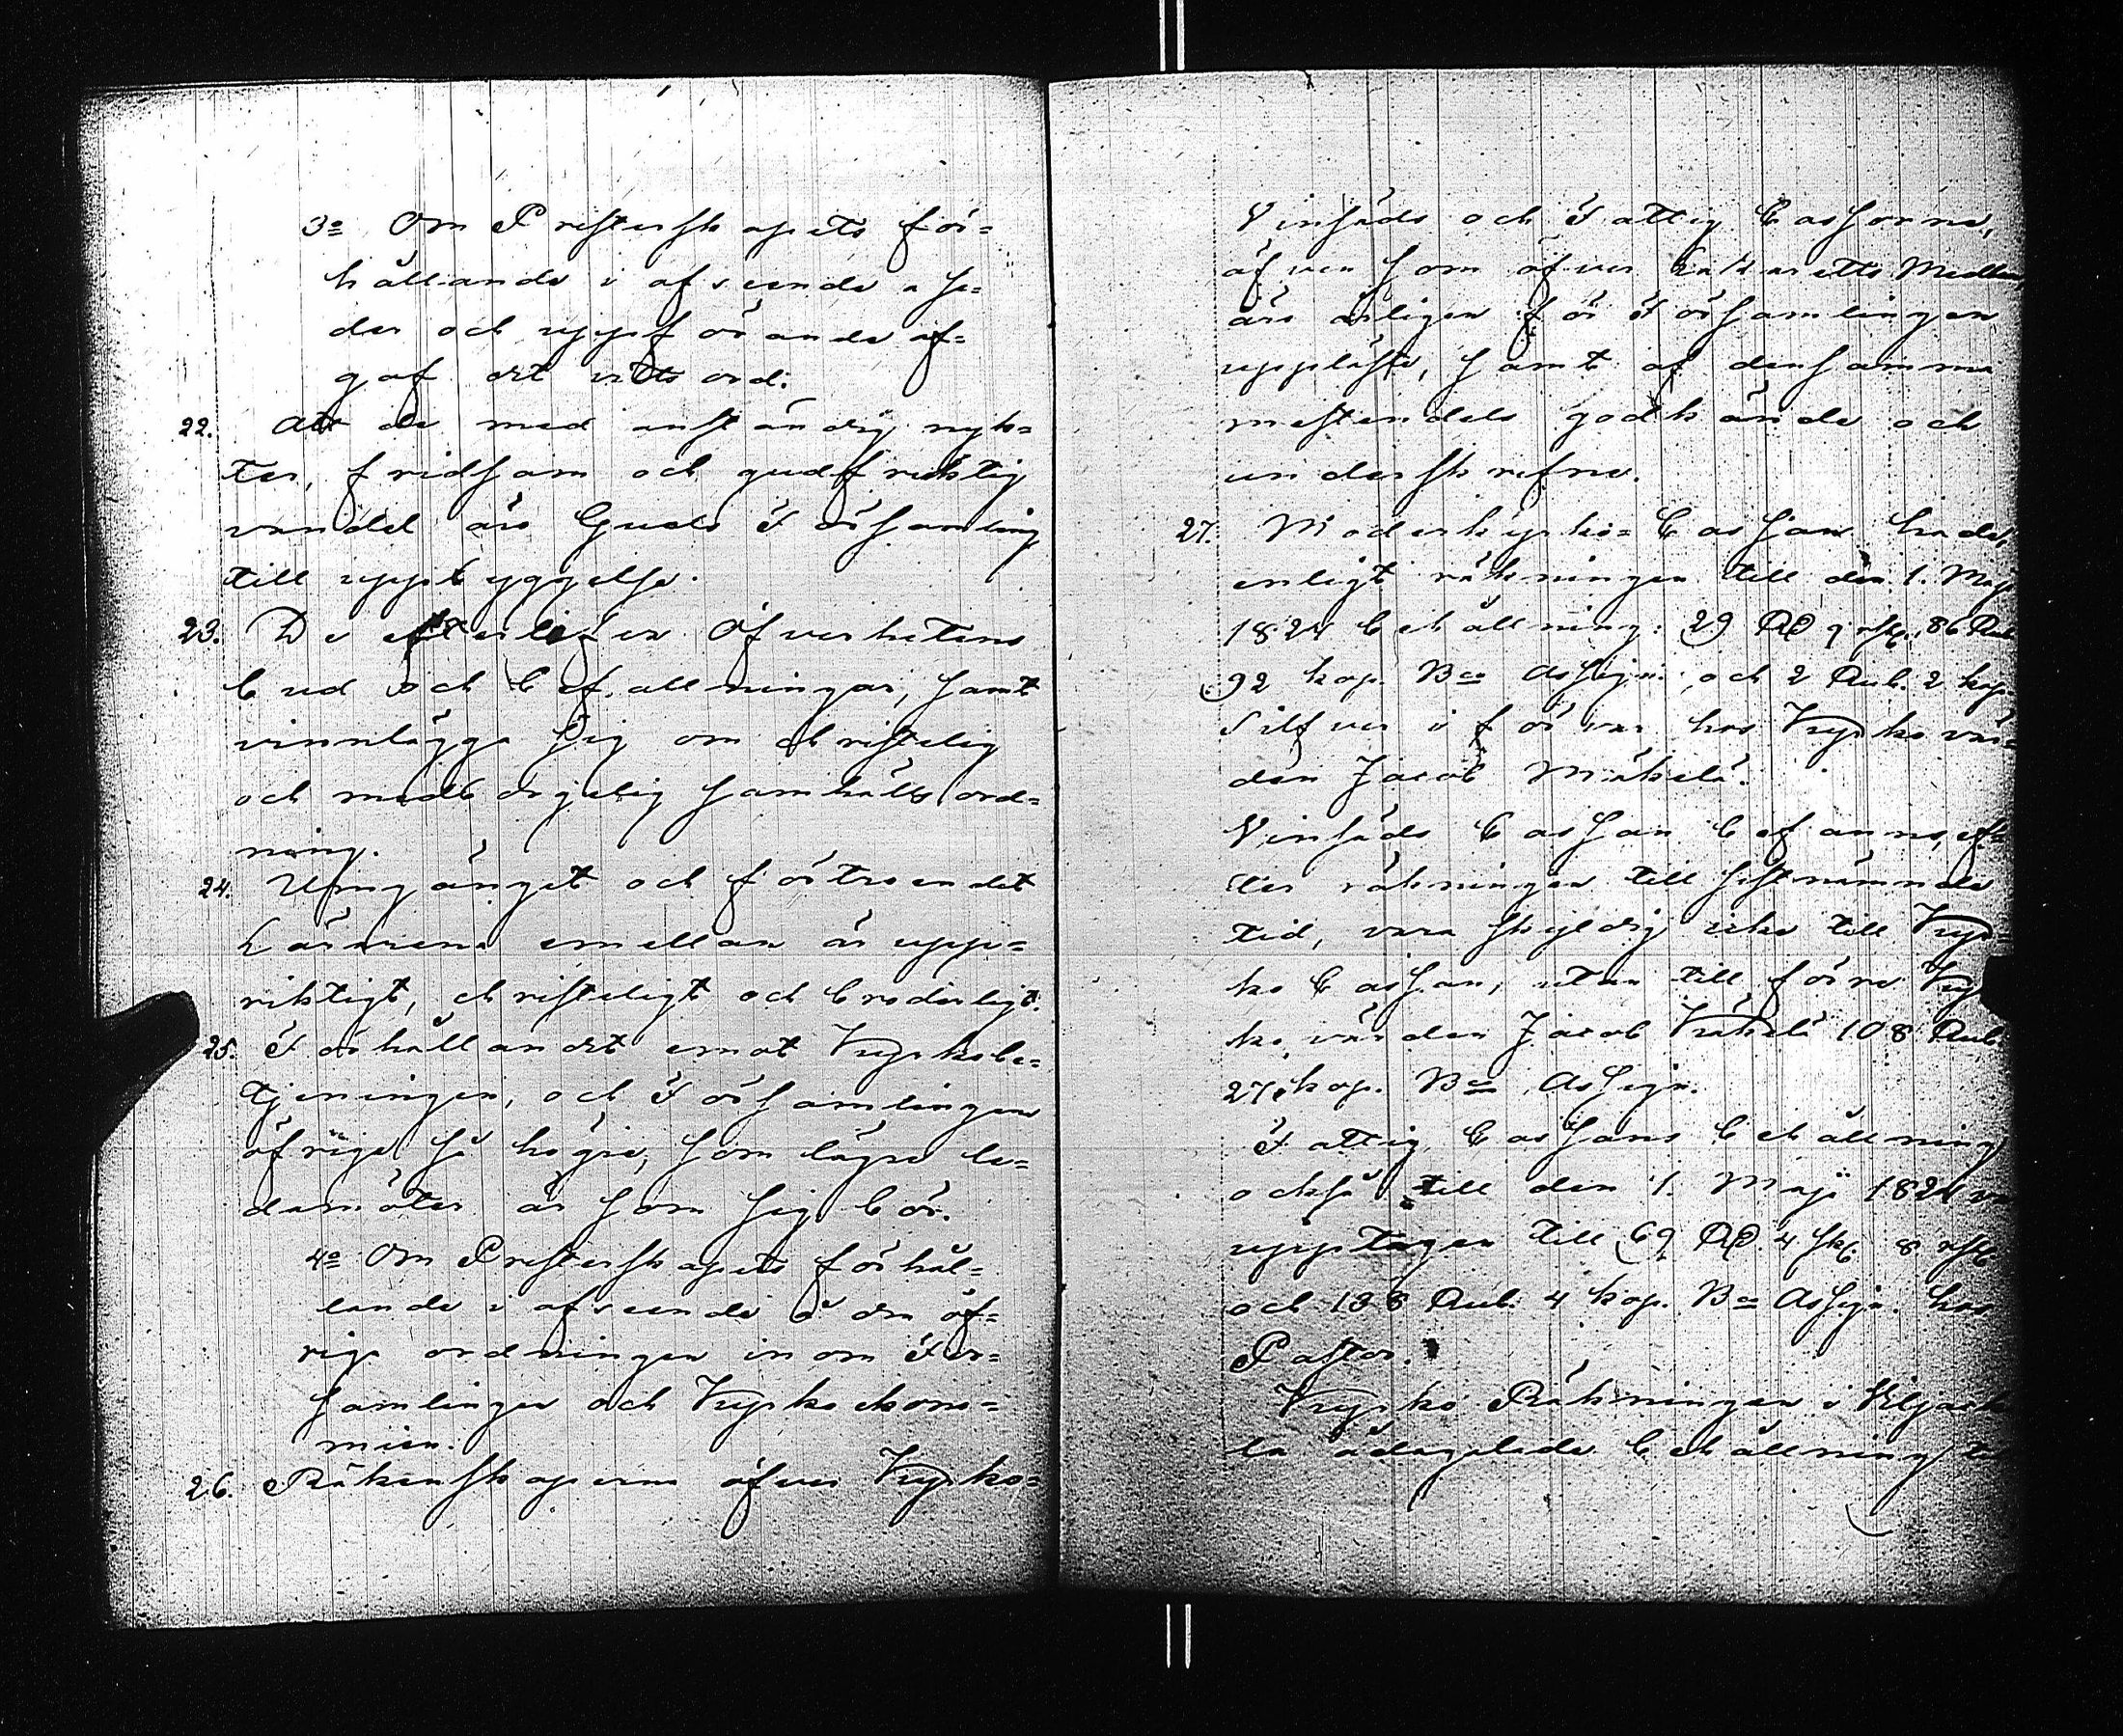 3o Om Presterskapets för=
hållande i afseende a se=
der och uppförande af=
gaf det vitts ord:
22. Att de med anständig nyk=
ter, fridsam och gudfruktig
vandel äro Guds Församling
till uppbyggelse.
23. De efterlefva Öfverhetens
bud och befallningar, samt
vinnlägga sig om christelig
och medborgelig samhälls ord=
ning.
24. Umgänget och förtroendet
Lärarena emellan är upp=
riktigt, christeligt och broderligt.
25. Förhållandet emot Kyrkobe=
tjeningen, och Församlingens
öfrige så högre, som lägre le=
damöter är som sig bör.
4o Om Presterskapets förhål=
lande i afseende å den öf=
riga ordningen inom För=
samlingen och Kyrkoekono=
mien.
26. Räkenskaperna öfver Kyrko=
Vinsäds och Fattig Cassorna,
äfven som öfver Lakaretts Medlen
äro årligen för Församlingen
uppläste, samt af densamma
mestendels godkände och
underskrefne.
27. Moderkyrko=Cassan hade
enligt räkningen till den 1. Maji
1824 behållning: 29 RD 9 rst. 86 Rub.
92 kop. Bco Assign. och 2 Rub. 2 kop.
Silfver i förvar hos Kyrkovär=
den Jacob Mäkelä.
Vinsäds Cassan befanns, ef=
ter räkningen till sistnämnde
tid, vara skyldig icke till Kyr=
ko Cassan, utan till förre Kyr=
ko värden Jacob 108 Rub.
27 kop. Bco Assign.
Fattig Cassans behållning
också till den 1. Maji 1824 var
upptagen till 69 RD 4 sk. 8 rst.
och 138 Rub. 4 kop. Bco Assign. hos
Pastor.
Kyrko Räkningen i
la ådagalade behållning till